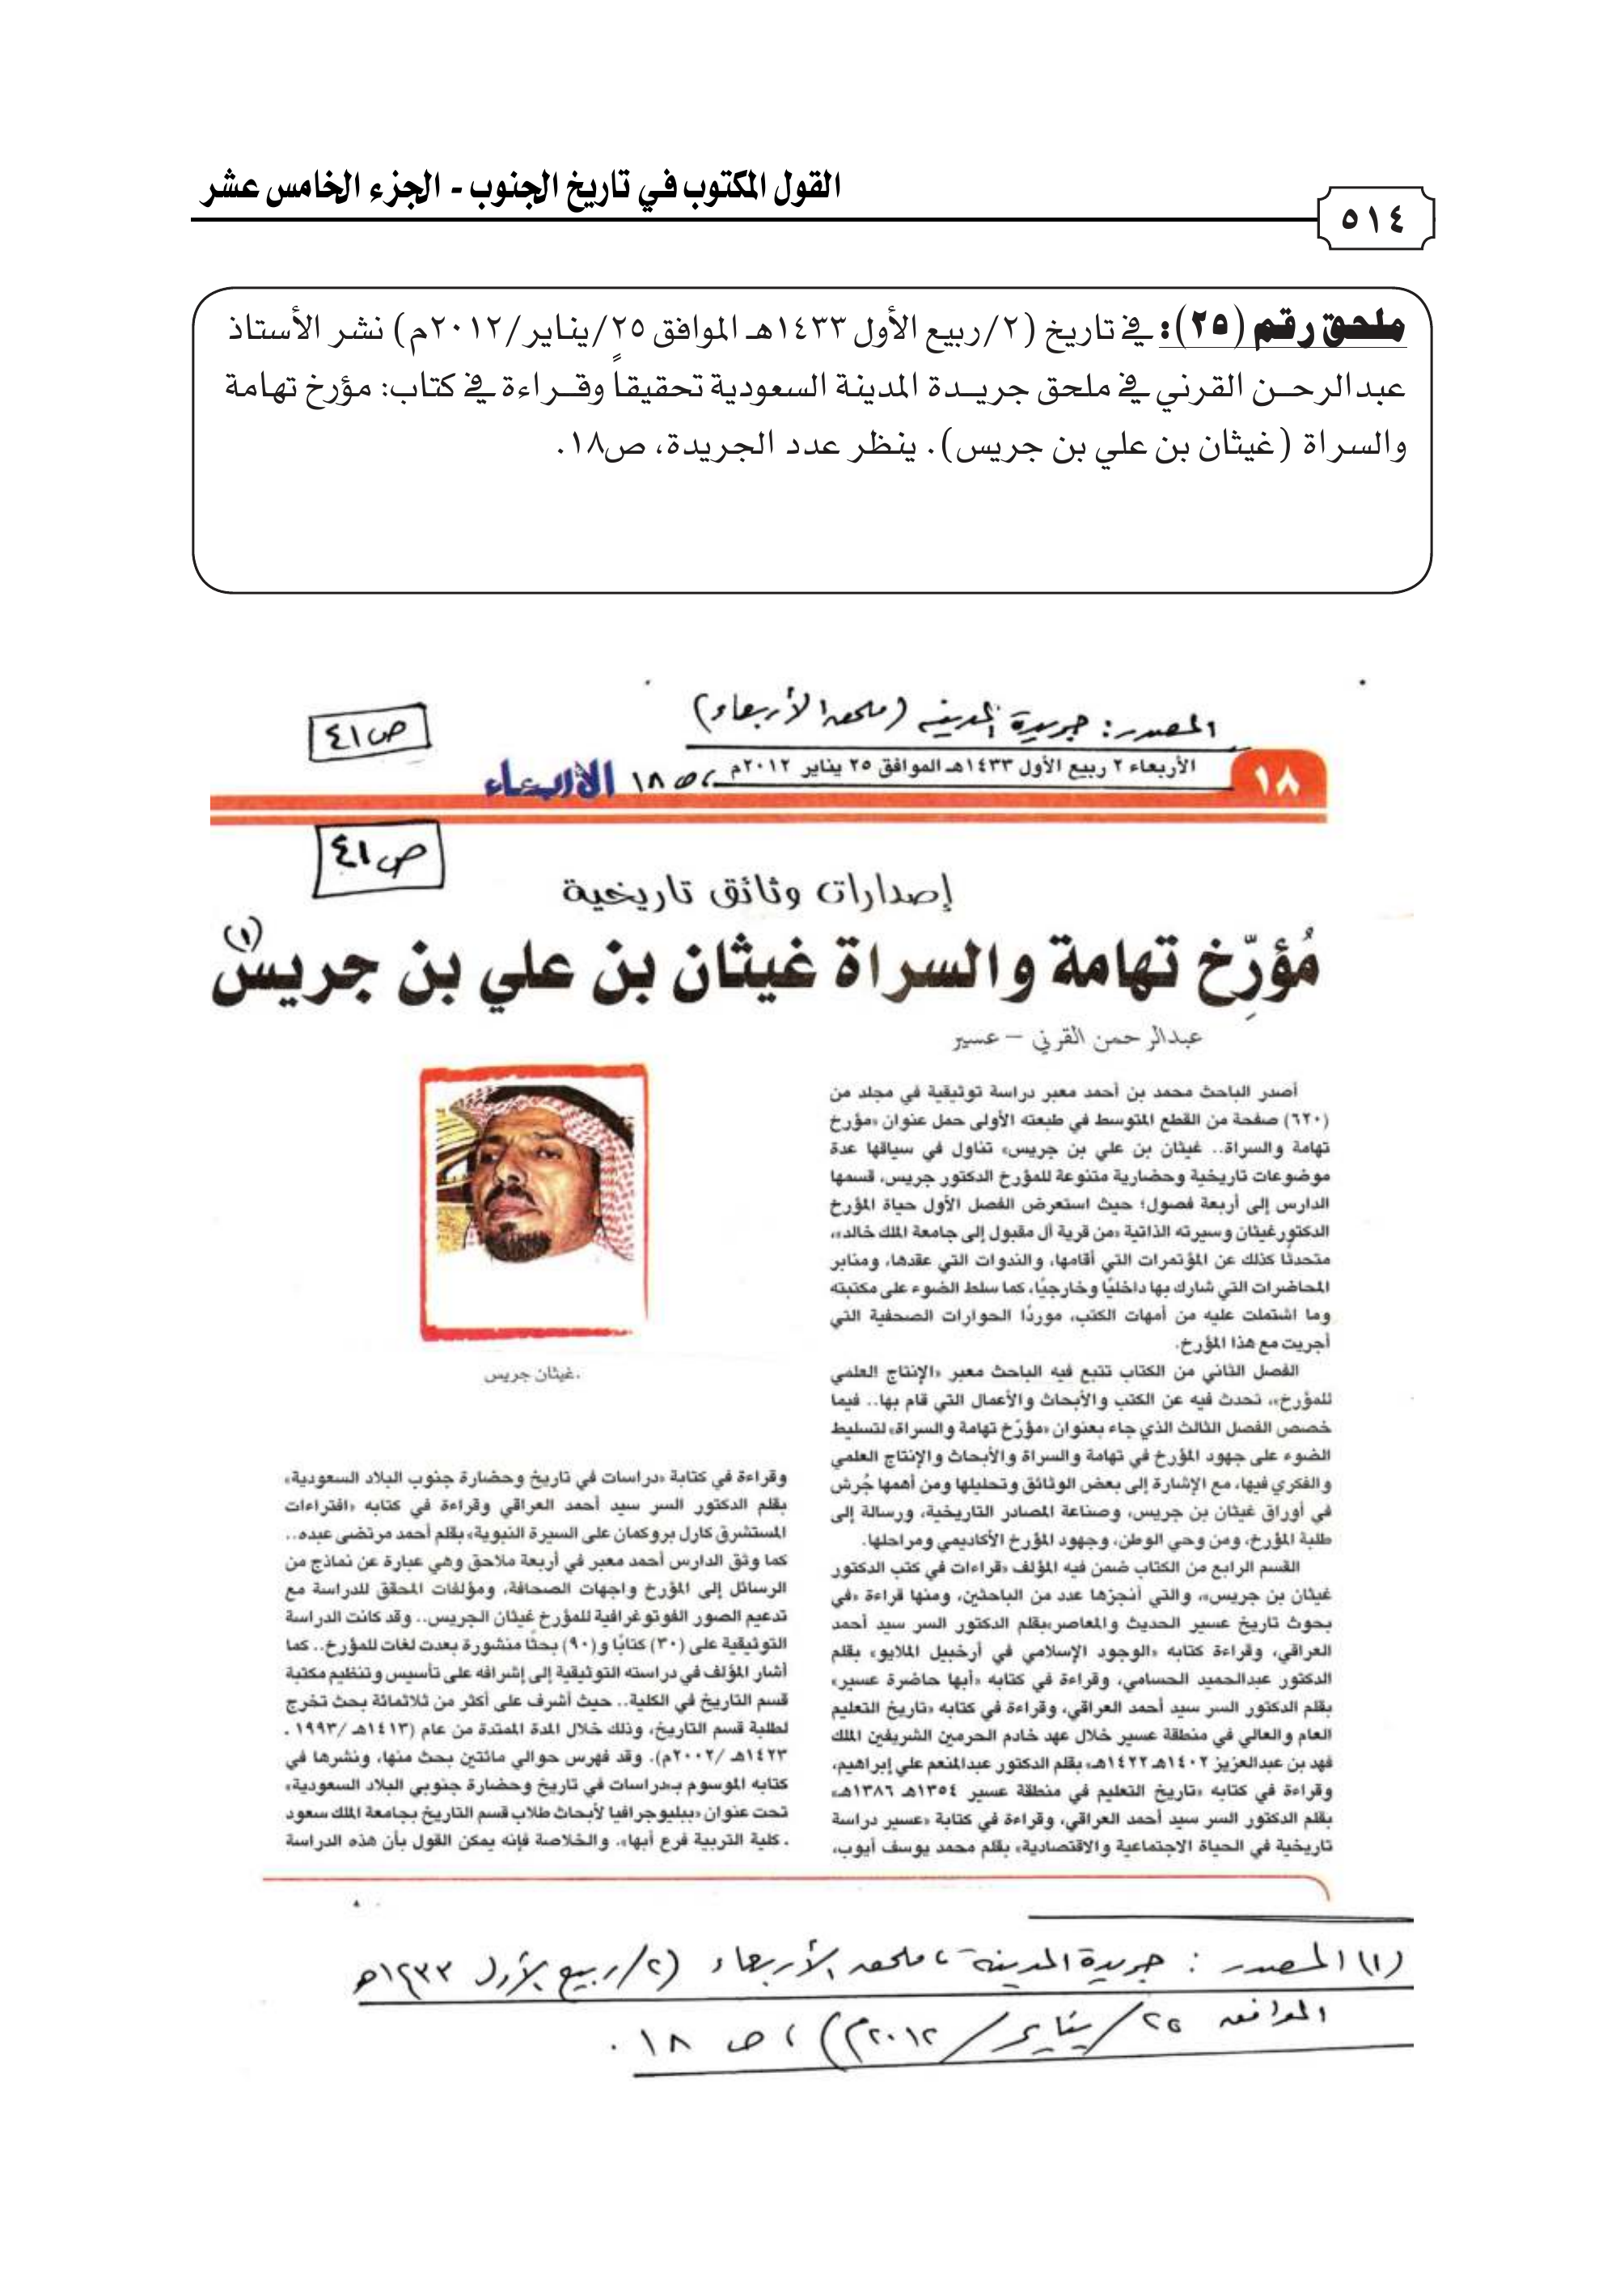 القول المكتوب في تاريخ الجنوب - الجزء الخامس عشر
٥١٤
ملحق رقم (٢٥): في تاريخ (٢/ربيع الأول ١٤٣٣هـ الموافق ٢٥/يناير/٢٠١٢م) نشر الأستاذ
عبدالرحمن القرني في ملحق جريدة المدينة السعودية تحقيقاً وقراءة في كتاب: مؤرخ تهامة
والسراة (غيثان بن علي بن جريس). ينظر عدد الجريدة، ص١٨.
المصدر: جريدة المدينة (ملحق الأربعاء)
ص٤١
١٨
الأربعاء ٢ ربيع الأول ١٤٣٣هـ الموافق ٢٥ يناير ٢٠١٢م، ص ١٨
الأربعاء
ص٤١
إصدارات وثائق تاريخية
مُؤرّخ تهامة والسراة غيثان بن علي بن جريس (١)
عبدالرحمن القرني – عسير
أصدر الباحث محمد بن أحمد معبر دراسة توثيقية في مجلد من
(٦٢٠) صفحة من القطع المتوسط في طبعته الأولى حمل عنوان «مؤرخ
تهامة والسراة.. غيثان بن علي بن جريس» تناول في سياقها عدة
موضوعات تاريخية وحضارية متنوعة للمؤرخ الدكتور جريس، قسمها
الدارس إلى أربعة فصول؛ حيث استعرض الفصل الأول حياة المؤرخ
الدكتور غيثان وسيرته الذاتية «من قرية آل مقبول إلى جامعة الملك خالد»،
متحدثًا كذلك عن المؤتمرات التي أقامها، والندوات التي عقدها، ومنابر
المحاضرات التي شارك بها داخليًا وخارجيًا، كما سلط الضوء على مكتبته
وما اشتملت عليه من أمهات الكتب، موردًا الحوارات الصحفية التي
أجريت مع هذا المؤرخ.
الفصل الثاني من الكتاب تتبع فيه الباحث معبر «الإنتاج العلمي
للمؤرخ»، تحدث فيه عن الكتب والأبحاث والأعمال التي قام بها.. فيما
خصص الفصل الثالث الذي جاء بعنوان «مؤرّخ تهامة والسراة» لتسليط
الضوء على جهود المؤرخ في تهامة والسراة والأبحاث والإنتاج العلمي
والفكري فيها، مع الإشارة إلى بعض الوثائق وتحليلها ومن أهمها جُرش
في أوراق غيثان بن جريس، وصناعة المصادر التاريخية، ورسالة إلى
طلبة المؤرخ، ومن وحي الوطن، وجهود المؤرخ الأكاديمي ومراحلها.
القسم الرابع من الكتاب ضمن فيه المؤلف «قراءات في كتب الدكتور
غيثان بن جريس»، والتي أنجزها عدد من الباحثين، ومنها قراءة «في
بحوث تاريخ عسير الحديث والمعاصر» بقلم الدكتور السر سيد أحمد
العراقي، وقراءة كتابه «الوجود الإسلامي في أرخبيل الملايو» بقلم
الدكتور عبدالحميد الحسامي، وقراءة في كتابه «أبها حاضرة عسير»
بقلم الدكتور السر سيد أحمد العراقي، وقراءة في كتابه «تاريخ التعليم
العام والعالي في منطقة عسير خلال عهد خادم الحرمين الشريفين الملك
فهد بن عبدالعزيز ١٤٠٢هـ ١٤٢٢هـ» بقلم الدكتور عبدالمنعم علي إبراهيم،
وقراءة في كتابه «تاريخ التعليم في منطقة عسير ١٣٥٤هـ ١٣٨٦هـ»
بقلم الدكتور السر سيد أحمد العراقي، وقراءة في كتابة «عسير دراسة
تاريخية في الحياة الاجتماعية والاقتصادية» بقلم محمد يوسف أيوب،
.غيثان جريس
وقراءة في كتابة «دراسات في تاريخ وحضارة جنوب البلاد السعودية»
بقلم الدكتور السر سيد أحمد العراقي وقراءة في كتابه «افتراءات
المستشرق كارل بروكمان على السيرة النبوية» بقلم أحمد مرتضى عبده..
كما وثق الدارس أحمد معبر في أربعة ملاحق وهي عبارة عن نماذج من
الرسائل إلى المؤرخ واجهات الصحافة، ومؤلفات المحقق للدراسة مع
تدعيم الصور الفوتوغرافية للمؤرخ غيثان الجريس.. وقد كانت الدراسة
التوثيقية على (٣٠) كتابًا و(٩٠) بحثًا منشورة بعدت لغات للمؤرخ.. كما
أشار المؤلف في دراسته التوثيقية إلى إشرافه على تأسيس وتنظيم مكتبة
قسم التاريخ في الكلية.. حيث أشرف على أكثر من ثلاثمائة بحث تخرج
لطلبة قسم التاريخ، وذلك خلال المدة الممتدة من عام (١٤١٣هـ /١٩٩٣ .
١٤٢٣هـ /٢٠٠٢م). وقد فهرس حوالي مائتين بحث منها، ونشرها في
كتابه الموسوم بـ«دراسات في تاريخ وحضارة جنوبي البلاد السعودية»
تحت عنوان «ببليوجرافيا لأبحاث طلاب قسم التاريخ بجامعة الملك سعود
. كلية التربية فرع أبها». والخلاصة فإنه يمكن القول بأن هذه الدراسة
(١) المصدر: جريدة المدينة، ملحق الأربعاء (٢/ربيع الأول ١٤٣٣هـ
الموافق ٢٥/يناير/٢٠١٢م)، ص ١٨.